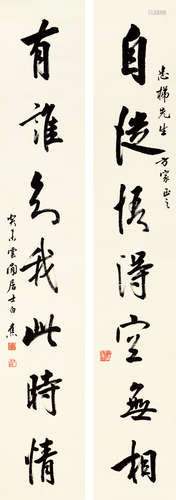 忠梯先生
方家正之
自從悟得空無相
有誰知我此時情
雲間居士白蕉